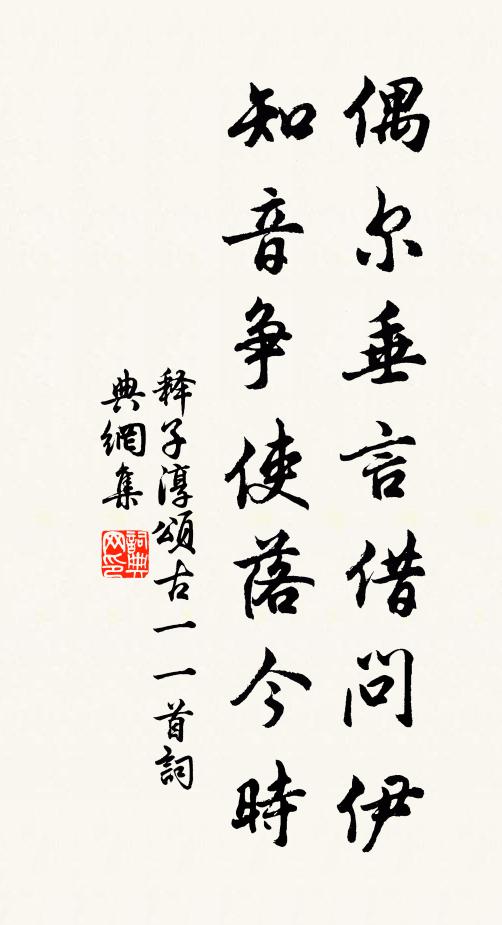 偶尔垂言借问伊
知音争使落今時
释子淳頌古一一首詞
典網集
詞典
网印